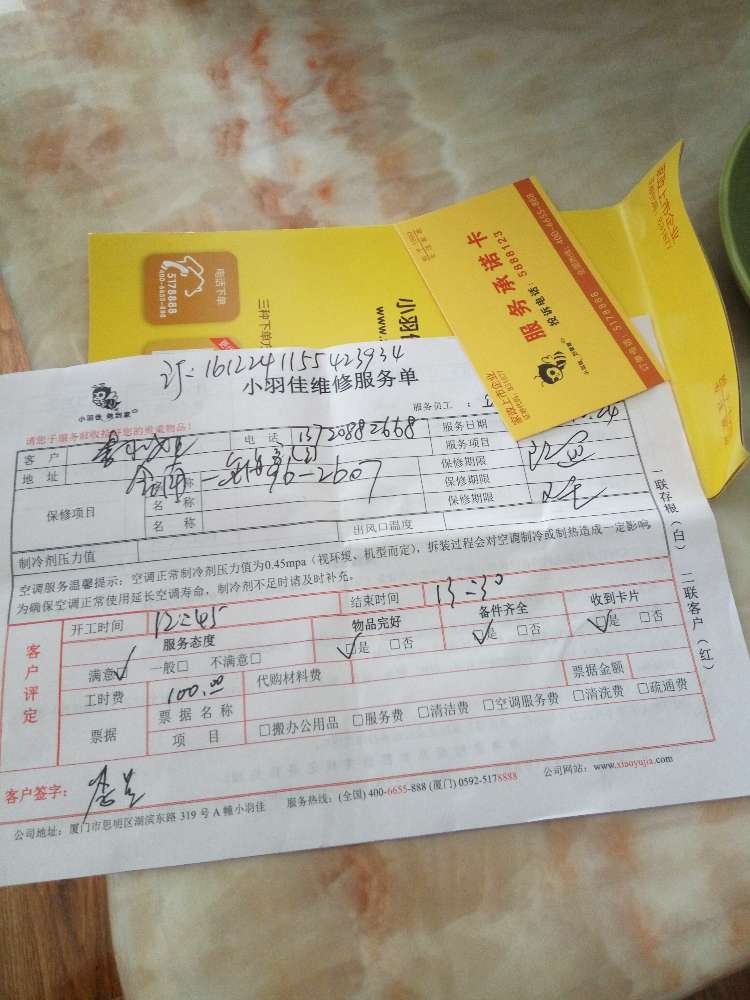 电话下单
5178888
400-6655-888
三种下单方
小羽
www.
服务承诺卡
投诉电话：5888123
订单电话：5178888 全国热线：400-6655-888
小羽佳
家政上市企业
股权代码：831077
1612241155423934
小羽佳维修服务单
小羽佳
服务员工：
请您于服务前收拾好您的贵重物品！
客户 电话 13720882668 服务日期
地址 96-2607 服务项目
保修项目 名称 保修期限
名称 保修期限
名称 保修期限
制冷剂压力值 出风口温度
空调服务温馨提示：空调正常制冷剂压力值为0.45mpa（视环境、机型而定），拆装过程会对空调制冷或制热造成一定影响
为确保空调正常使用延长空调寿命，制冷剂不足时请及时补充。
客户评定
开工时间 12:45 结束时间 13:30
服务态度 物品完好 备件齐全 收到卡片
满意☑ 一般□ 不满意□ ☑是 □否 ☑是 □否 ☑是 □否
工时费 100.00 代购材料费 票据金额
票据 票据名称
项目 □搬办公用品 □服务费 □清洁费 □空调服务费 □清洗费 □疏通费
客户签字：
公司地址：厦门市思明区湖滨东路 319 号 A 幢小羽佳 服务热线：(全国) 400-6655-888 (厦门) 0592-5178888 公司网站：www.xiaoyujia.com
一联存根（白） 二联客户（红）